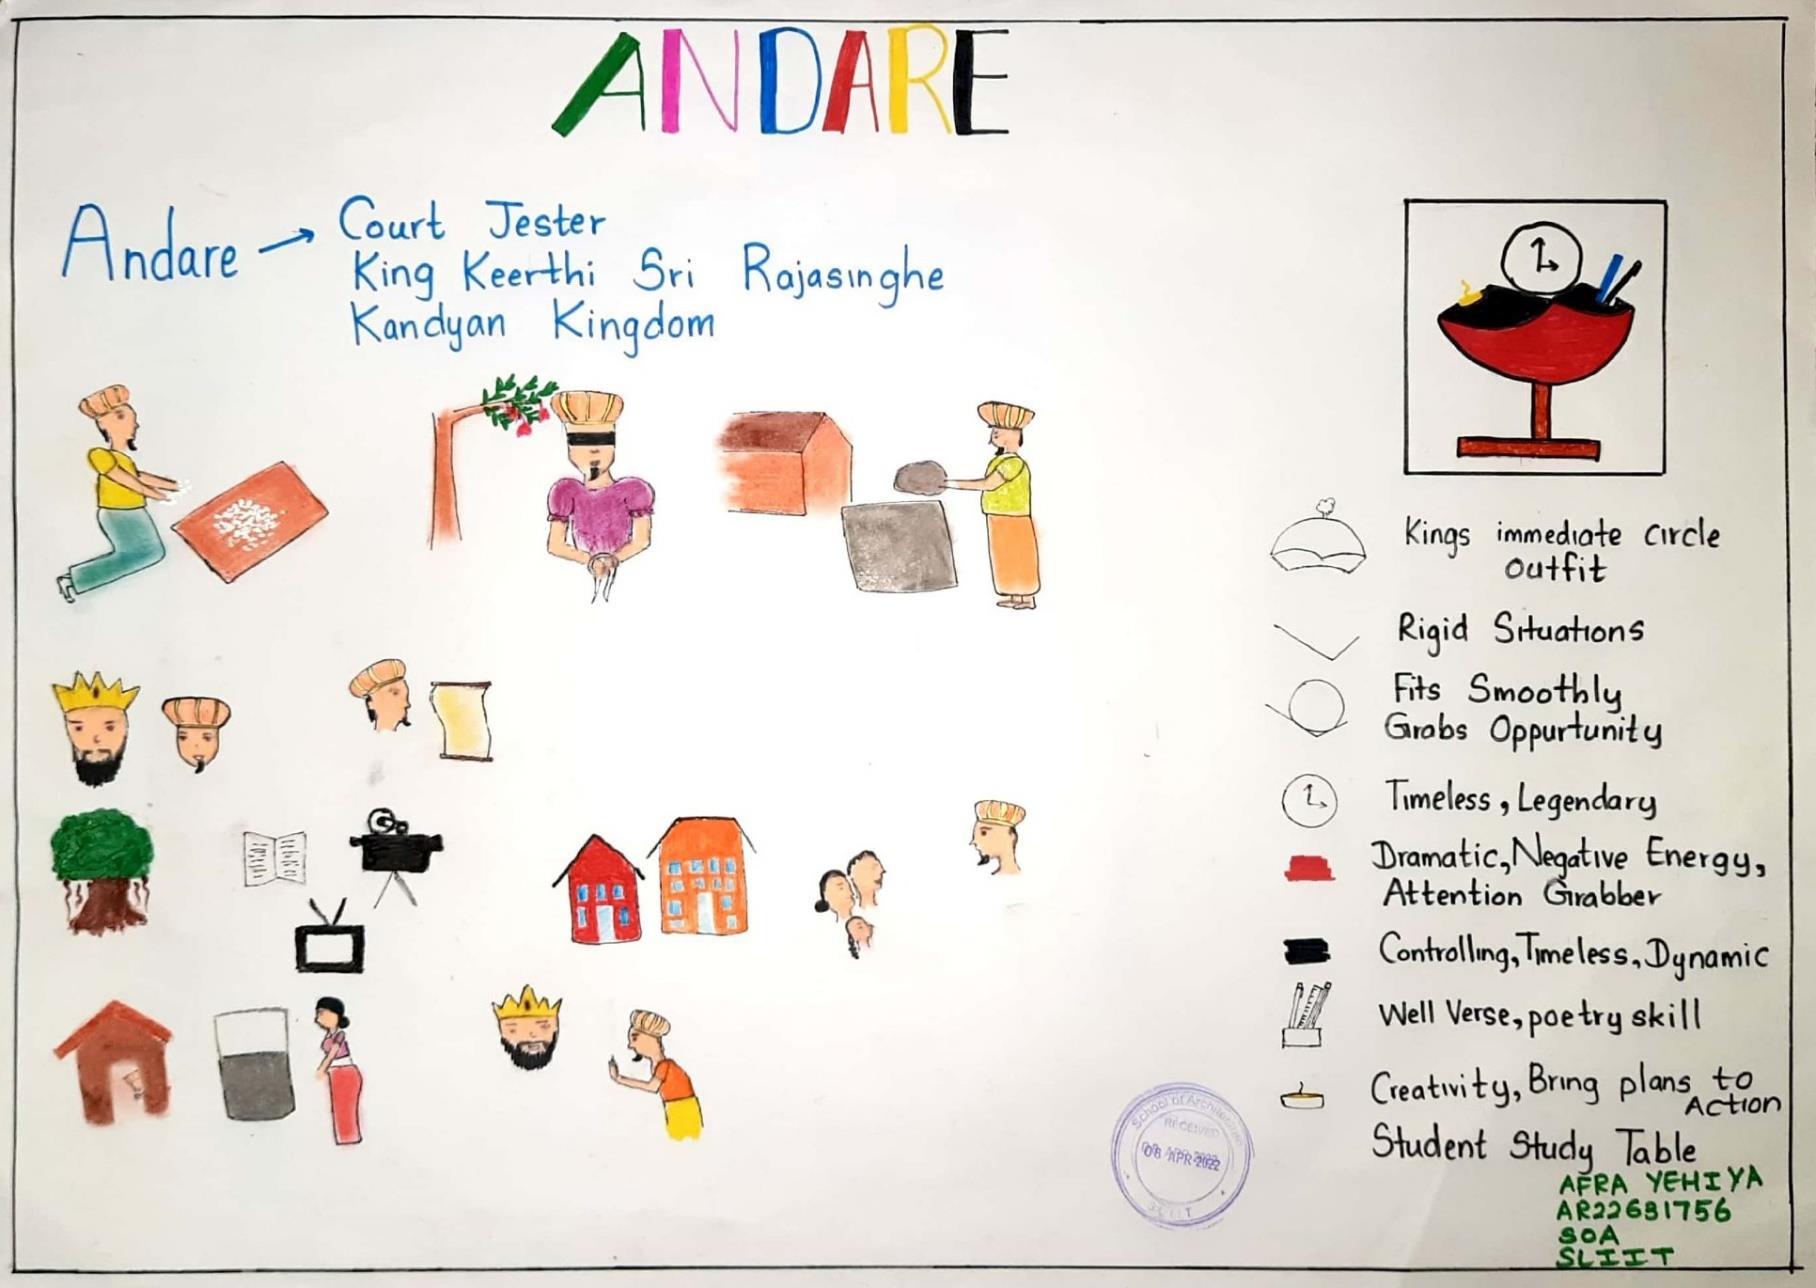 ANDARE
Andare → Court Jester
King Keerthi Sri Rajasinghe
Kandyan Kingdom
Kings immediate circle
outfit
Rigid Situations
Fits Smoothly
Grabs Oppurtunity
Timeless, Legendary
Dramatic, Negative Energy,
Attention Grabber
Controlling, Timeless, Dynamic
Well Verse, poetry skill
Creativity, Bring plans to
Action
Student Study Table
School of Architecture
RECEIVED
08 APR 2022
SLIIT
AFRA YEHIYA
AR22681756
SOA
SLIIT